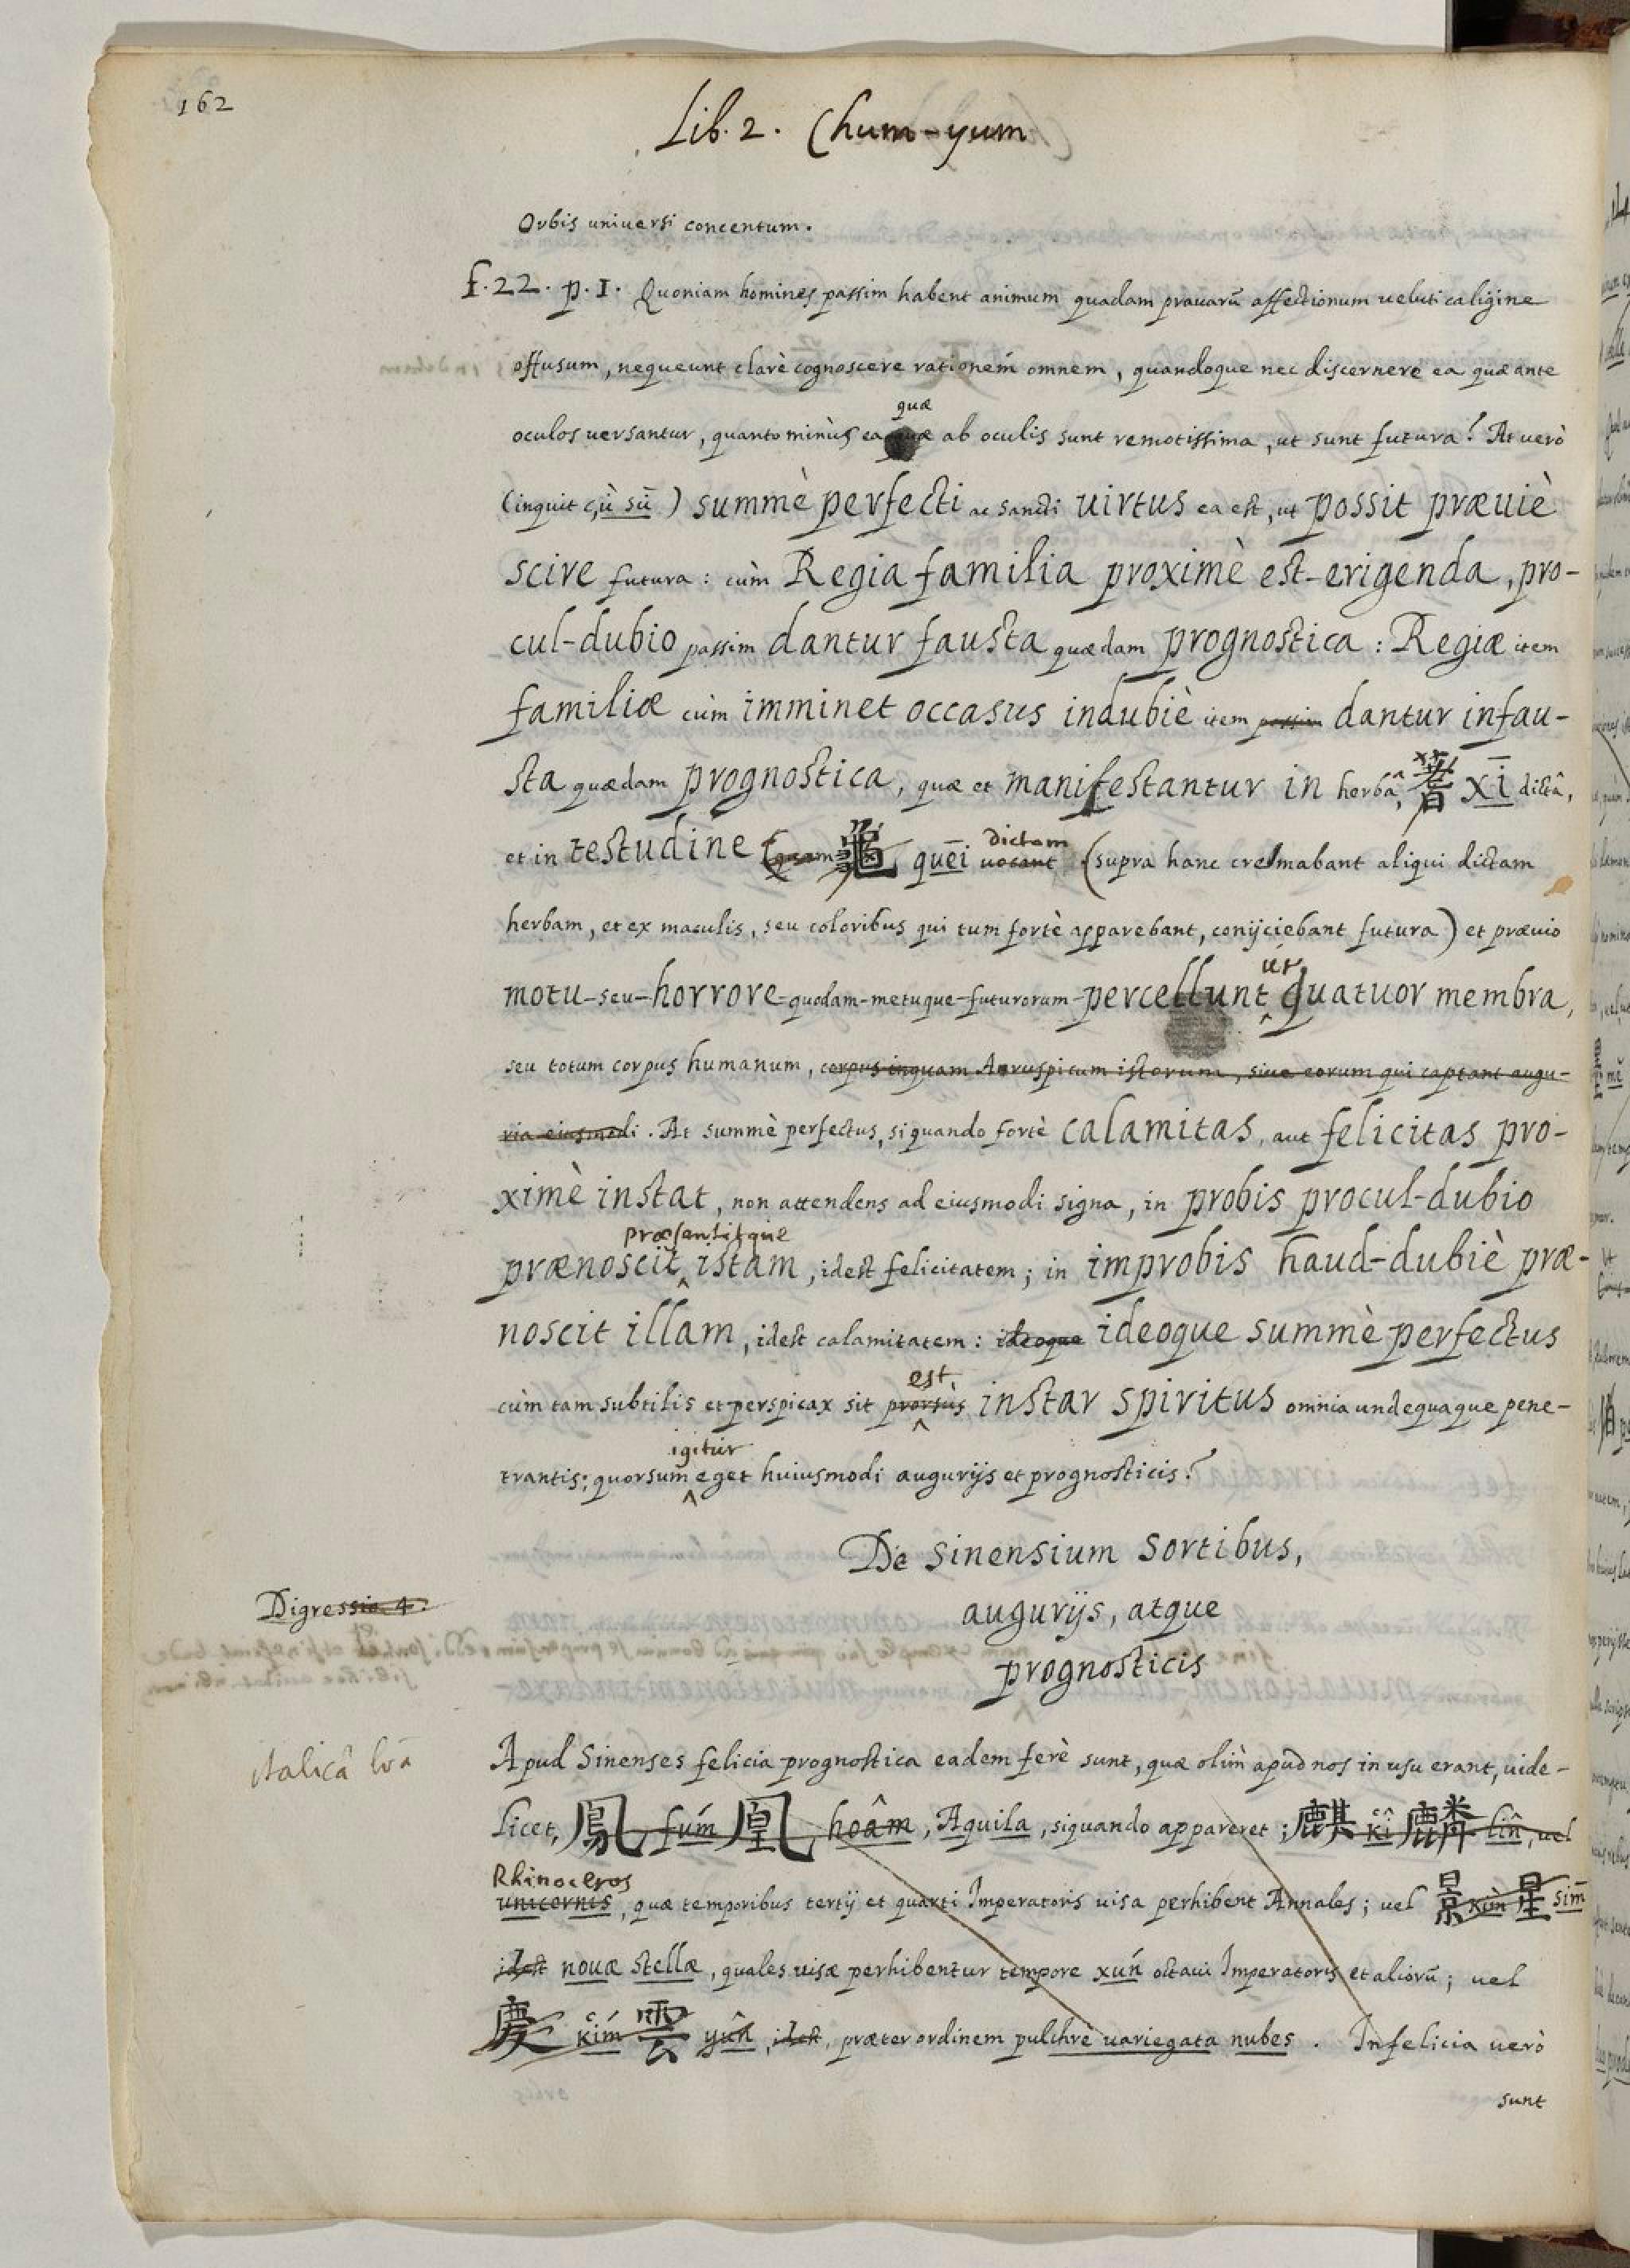 162
Lib. 2. Chum-yum
Orbis universi concentum.
f. 22. p. I. Quoniam homines passim habent animum quadam prauarũ affectionum ueluti caligine
offusum, nequeunt clarè cognoscere rationem omnem, quandoque nec discernere ea quæ ante
quæ
oculos uersantur, quanto minùs ea quæ ab oculis sunt remotissima, ut sunt futura? At uerò
(inquit çù sū) summè perfecti ac sancti uirtus ea est, ut possit præuiè
scire futura: cùm Regia familia proximè est-erigenda, pro-
cul-dubio passim dantur fausta quædam prognostica: Regiæ item
familiæ cùm imminet occasus indubiè item passim dantur infau-
sta quædam prognostica, quæ et manifestantur in herbâ, 蓍 xī dictâ,
dictam
et in testudine (quam 龜 quēi uocant (supra hanc cremabant aliqui dictam
herbam, et ex maculis, seu coloribus qui tum fortè apparebant, conijciebant futura) et præuio
ur
motu-seu-horrore-quodam-metuque-futurorum-percellunt quatuor membra,
seu totum corpus humanum, corpus inquam Aruspicum istorum, siue eorum qui captant augu-
ria eiusmodi. At summè perfectus, siquando fortè calamitas, aut felicitas pro-
ximè instat, non attendens ad eiusmodi signa, in probis procul-dubio
præsentitque
prænoscit istam, idest felicitatem; in improbis haud-dubiè præ-
noscit illam, idest calamitatem: ideoque ideoque summè perfectus
est,
cùm tam subtilis et perspicax sit prorsùs instar spiritus omnia undequaque pene-
igitur
trantis; quorsum eget huiusmodi augurijs et prognosticis?
De Sinensium Sortibus,
Digressio 4.
augurijs, atque
prognosticis
italicâ lrã
Apud Sinenses felicia prognostica eadem ferè sunt, quæ olim apud nos in usu erant, uide-
licet, 鳳 fúm 凰 hoâm, Aquila, siquando appareret; 麒 kî 麟 lîn, uel
Rhinoceros
unicornis, quæ temporibus tertij et quarti Imperatoris uisa perhibent Annales; uel 景 kùn 星 sim̄
idest nouæ stellæ, quales uisæ perhibentur tempore xún octaui Imperatoris et aliorũ; uel
慶 kím 雲 yûn, idest, præter ordinem pulchrè uariegata nubes. Infelicia uerò
sunt